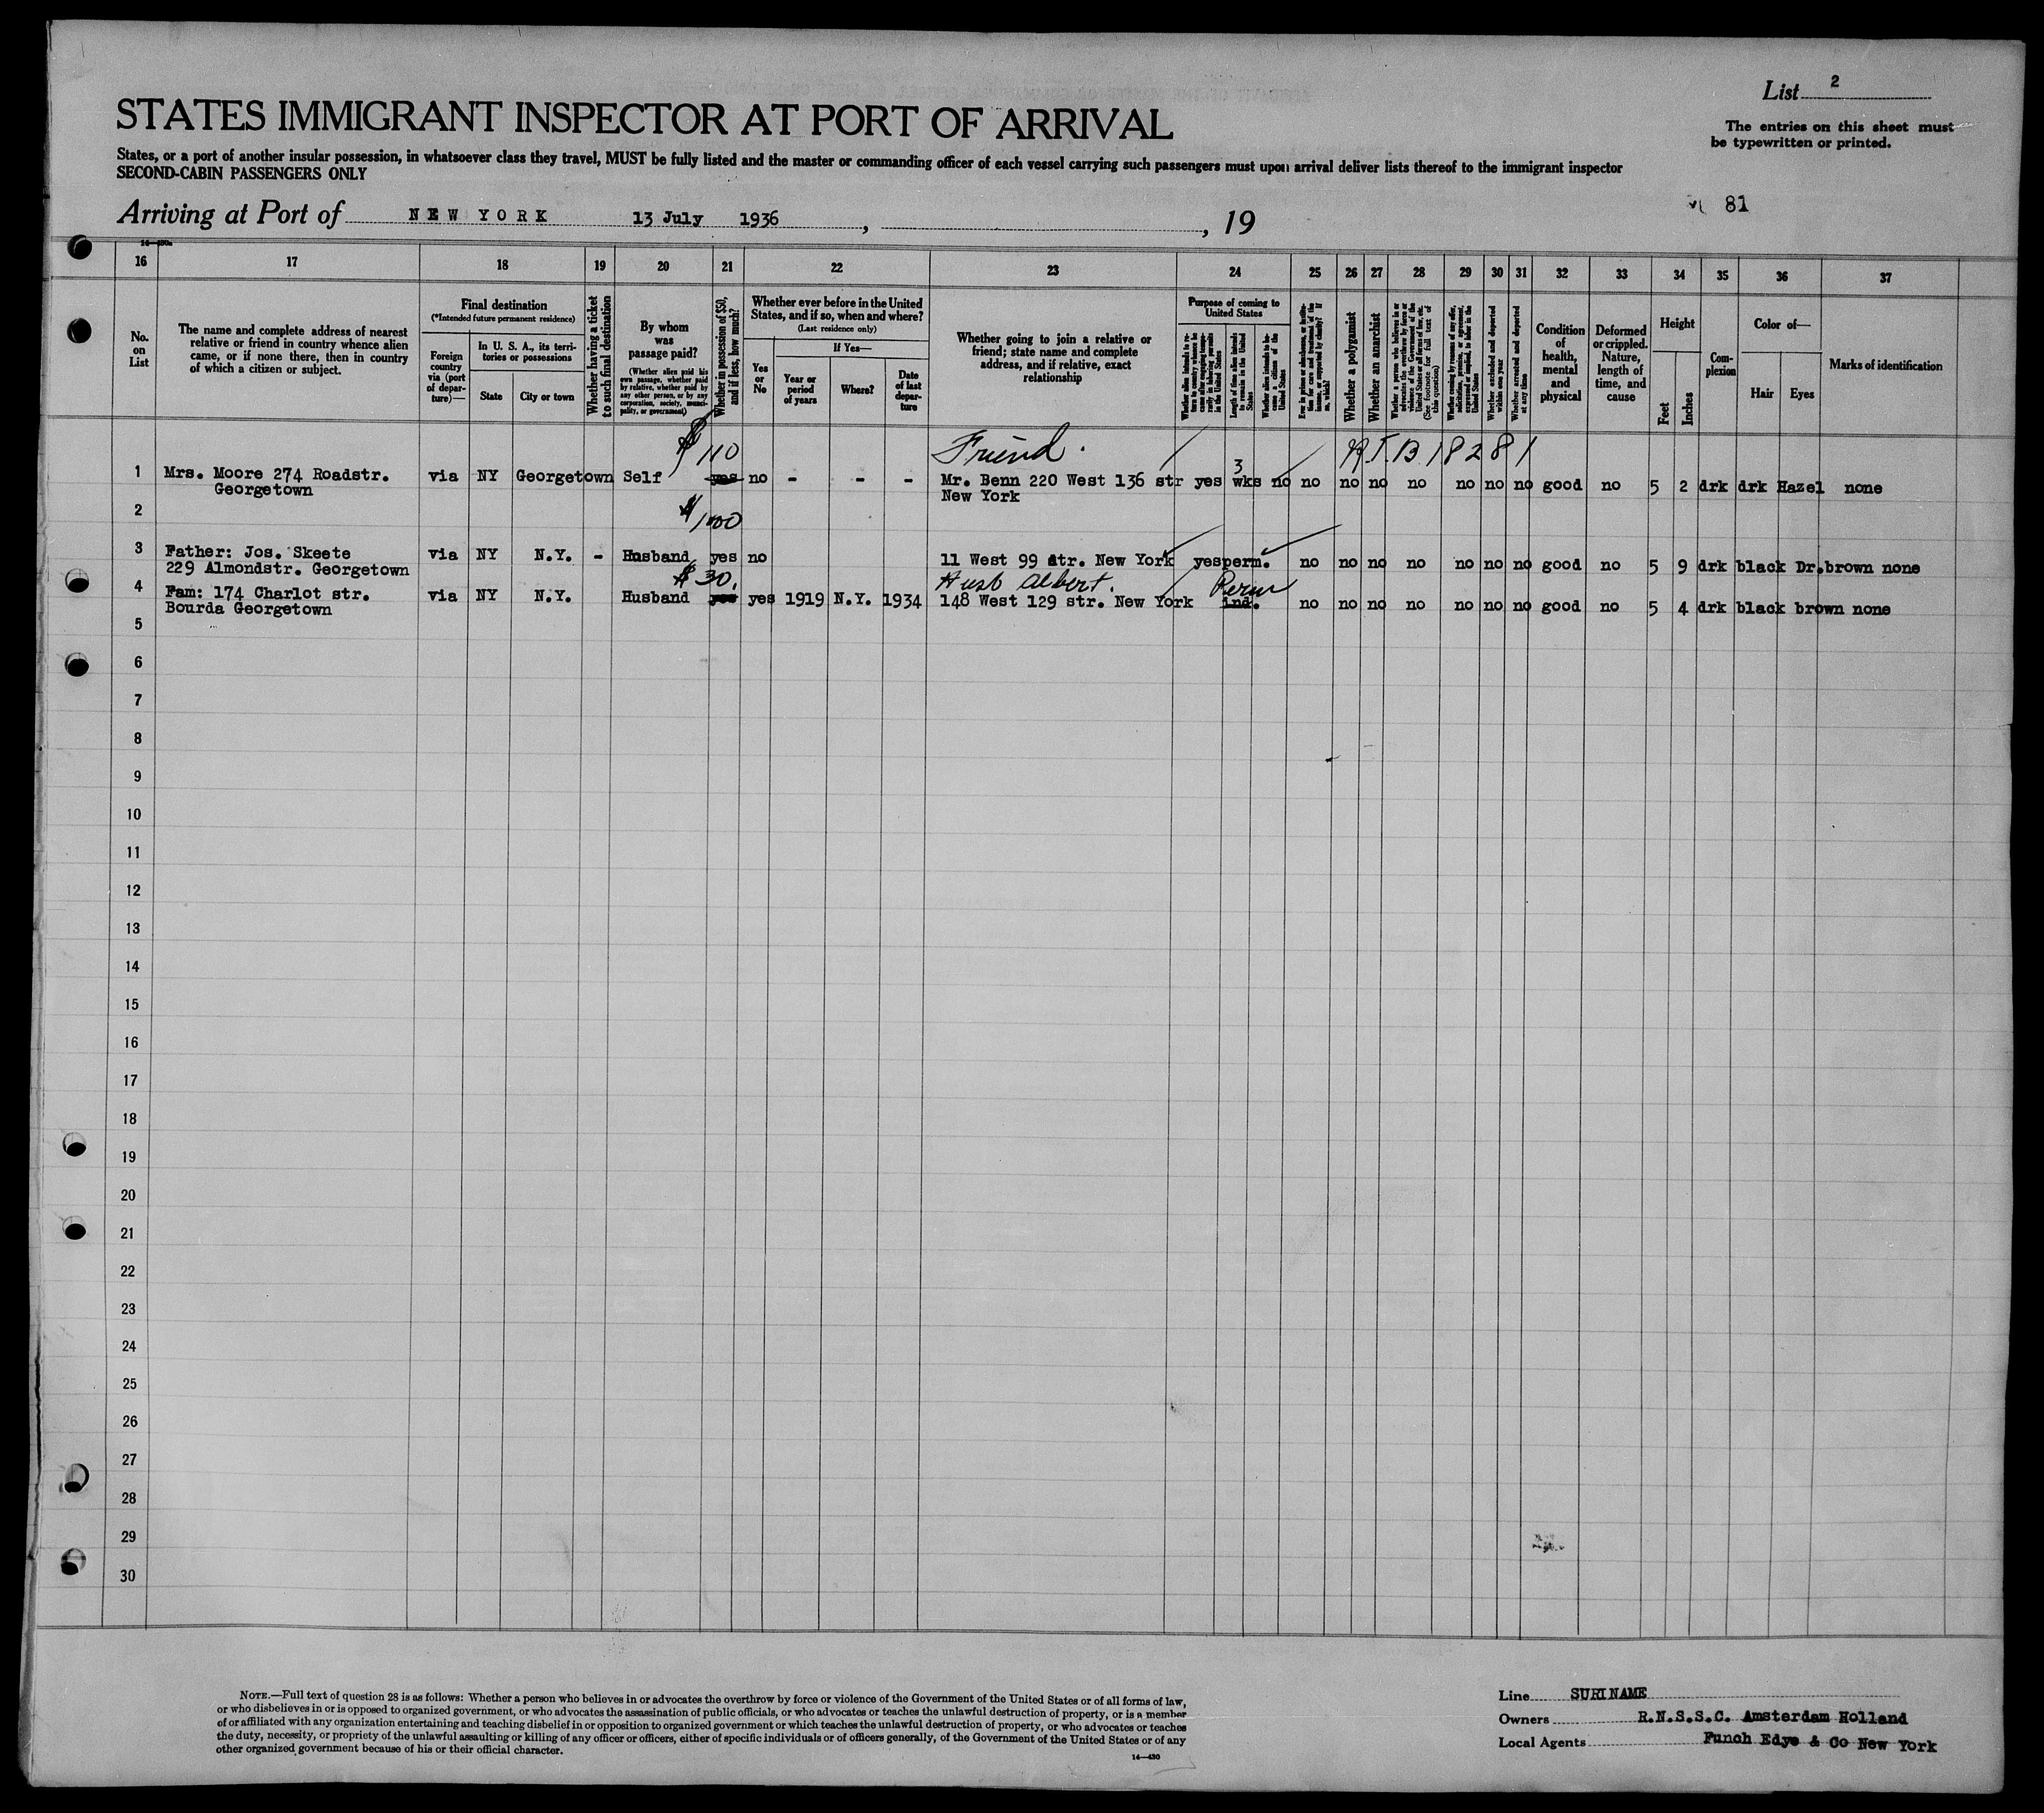 List 2
The entries on this sheet must
be typewritten or printed.
STATES IMMIGRANT INSPECTOR AT PORT OF ARRIVAL
States, or a port of another insular possession, in whatsoever class they travel, MUST be fully listed and the master or commanding officer of each vessel carrying such passengers must upon arrival deliver lists thereof to the immigrant inspector
SECOND-CABIN PASSENGERS ONLY
81
Arriving at Port of NEW YORK 13 July 1936, , 19
16 17 18 19 20 21 22 23 24 25 26 27 28 29 30 31 32 33 34 35 36 37
No.
on
List
The name and complete address of nearest
relative or friend in country whence alien
came, or if none there, then in country
of which a citizen or subject.
Final destination
(*Intended future permanent residence)
Foreign
country
via (port
of depar-
ture)—
In U. S. A., its terri-
tories or possessions
State
City or town
Whether having a ticket
to such final destination
By whom
was
passage paid?
(Whether alien paid his
own passage, whether paid
by relative, whether paid by
any other person, or by any
corporation, society, munici-
pality, or government)
Whether in possession of $50,
and if less, how much?
Whether ever before in the United
States, and if so, when and where?
(Last residence only)
Yes
or
No
If Yes—
Year or
period
of years
Where?
Date
of last
depar-
ture
Whether going to join a relative or
friend; state name and complete
address, and if relative, exact
relationship
Purpose of coming to
United States
Length of time alien intends
to remain in the United
States
Whether alien intends to be-
come a citizen of the
United States
Whether a polygamist
Whether an anarchist
Whether excluded and deported
within one year
Whether arrested and deported
at any time
Condition
of
health,
mental
and
physical
Deformed
or crippled.
Nature,
length of
time, and
cause
Height
Feet
Inches
Com-
plexion
Color of—
Hair
Eyes
Marks of identification
$110 Friend. 3
1 Mrs. Moore 274 Roadstr. via NY Georgetown Self yes no - - - Mr. Benn 220 West 136 str yes wks no no no no no no no no good no 5 2 drk drk Hazel none
Georgetown New York
2 $100
3 Father: Jos. Skeete via NY N.Y. - Husband yes no 11 West 99 str. New York yes perm. no no no no no no no good no 5 9 drk black Dr.brown none
229 Almondstr. Georgetown
$30. Husb Albert. Perm
4 Fam: 174 Charlot str. via NY N.Y. Husband yes yes 1919 N.Y. 1934 148 West 129 str. New York ind. no no no no no no no good no 5 4 drk black brown none
Bourda Georgetown
5
6
7
8
9
10
11
12
13
14
15
16
17
18
19
20
21
22
23
24
25
26
27
28
29
30
NOTE.—Full text of question 28 is as follows: Whether a person who believes in or advocates the overthrow by force or violence of the Government of the United States or of all forms of law,
or who disbelieves in or is opposed to organized government, or who advocates the assassination of public officials, or who advocates or teaches the unlawful destruction of property, or is a member
of or affiliated with any organization entertaining and teaching disbelief in or opposition to organized government or which teaches the unlawful destruction of property, or who advocates or teaches
the duty, necessity, or propriety of the unlawful assaulting or killing of any officer or officers, either of specific individuals or of officers generally, of the Government of the United States or of any
other organized government because of his or their official character.
14—430
Line SURINAME
Owners R.N.S.S.C. Amsterdam Holland
Local Agents Funch Edye & Co New York